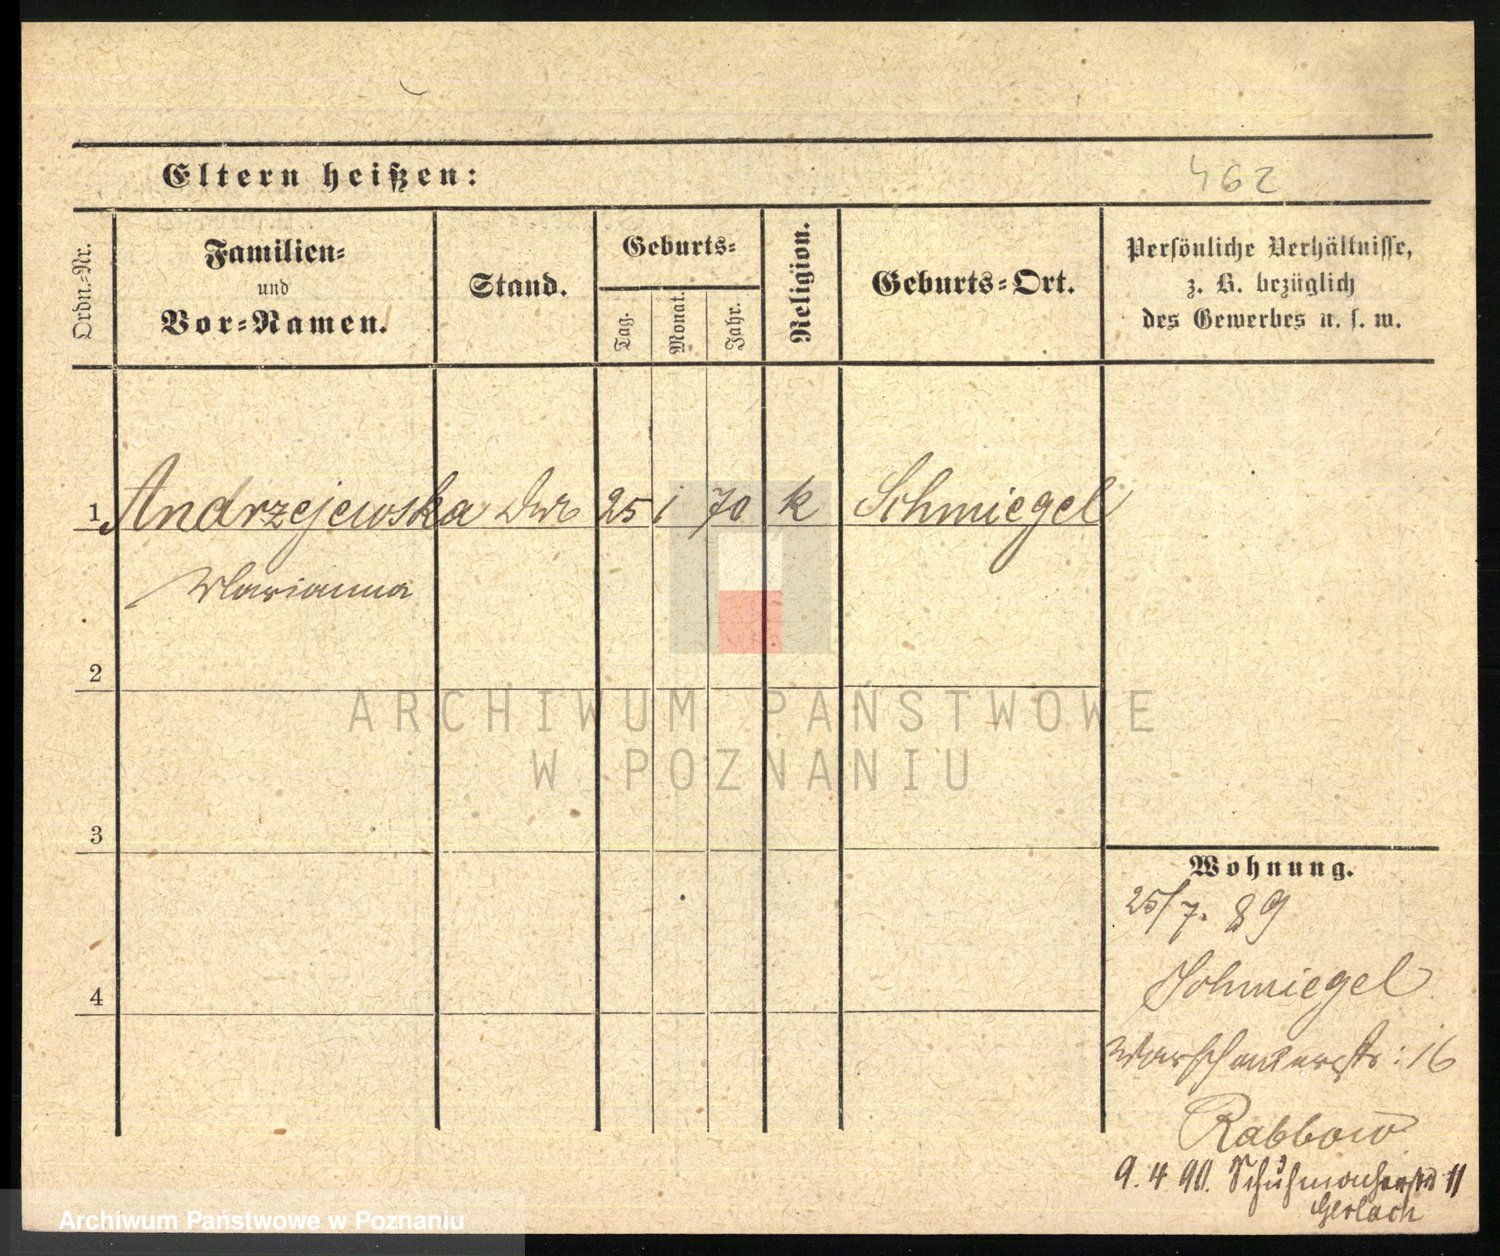 Eltern heißen:
462
Ordn.-Nr.
Familien-
und
Vor-Namen.
Stand.
Geburts-
Tag.
Monat.
Jahr.
Religion.
Geburts-Ort.
Persönliche Verhältnisse,
z. B. bezüglich
des Gewerbes u. s. w.
1 Andrzejewska 25 1 70 k Schmiegel
Marianna
2
ARCHIWUM PAŃSTWOWE
W POZNANIU
3
Wohnung.
25/7. 89
Schmiegel
4
Warschauerstr: 16
Rabbow
9. 4. 90. Schuhmacherstr 11
Gerlach
Archiwum Państwowe w Poznaniu